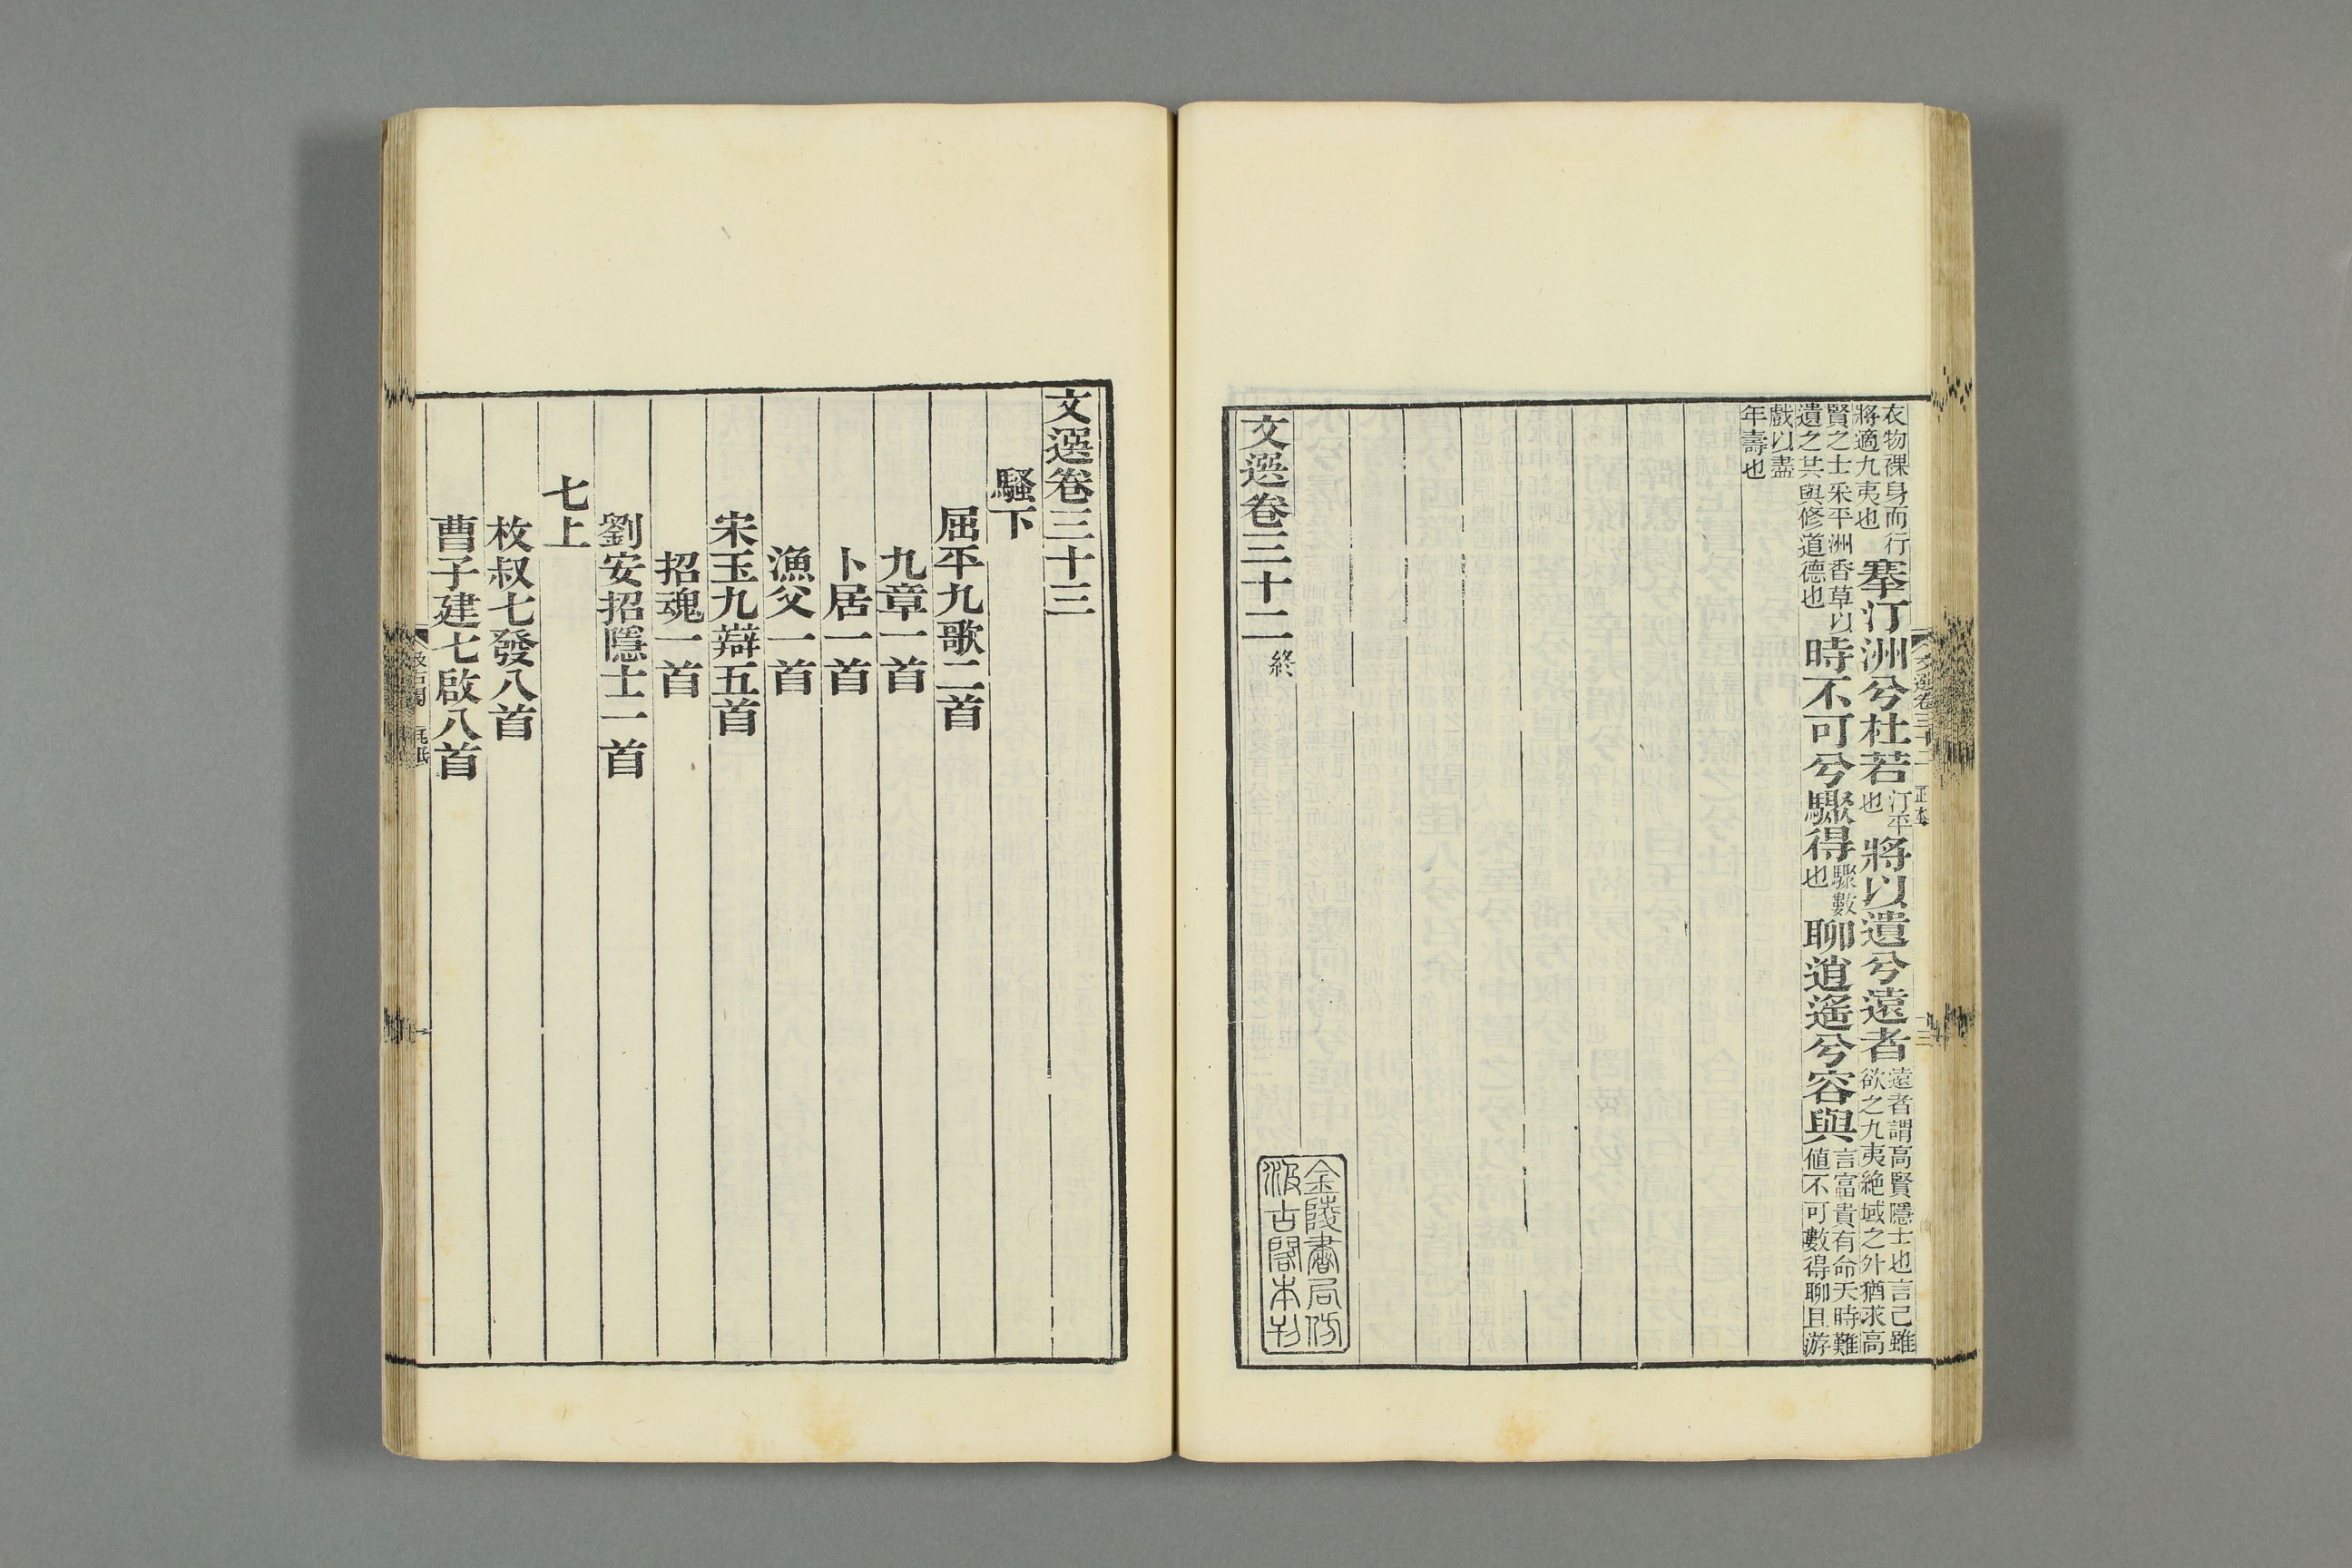 衣物裸身而行將適九夷也搴汀洲兮杜若汀平也將以遺兮遠者遠者謂高賢隱士也言己雖欲之九夷絶域之外猶求高
賢之士采平洲香草以遺之共與修道德也時不可兮驟得驟數也聊逍遙兮容與言富貴有命天時難值不可數得聊且游
戲以盡年壽也
文選卷三十二終
金陵書局仿
汲古閣本刊
文選卷三十三
騷下
屈平九歌二首
九章一首
卜居一首
漁父一首
宋玉九辯五首
招魂一首
劉安招隱士一首
七上
枚叔七發八首
曹子建七啟八首